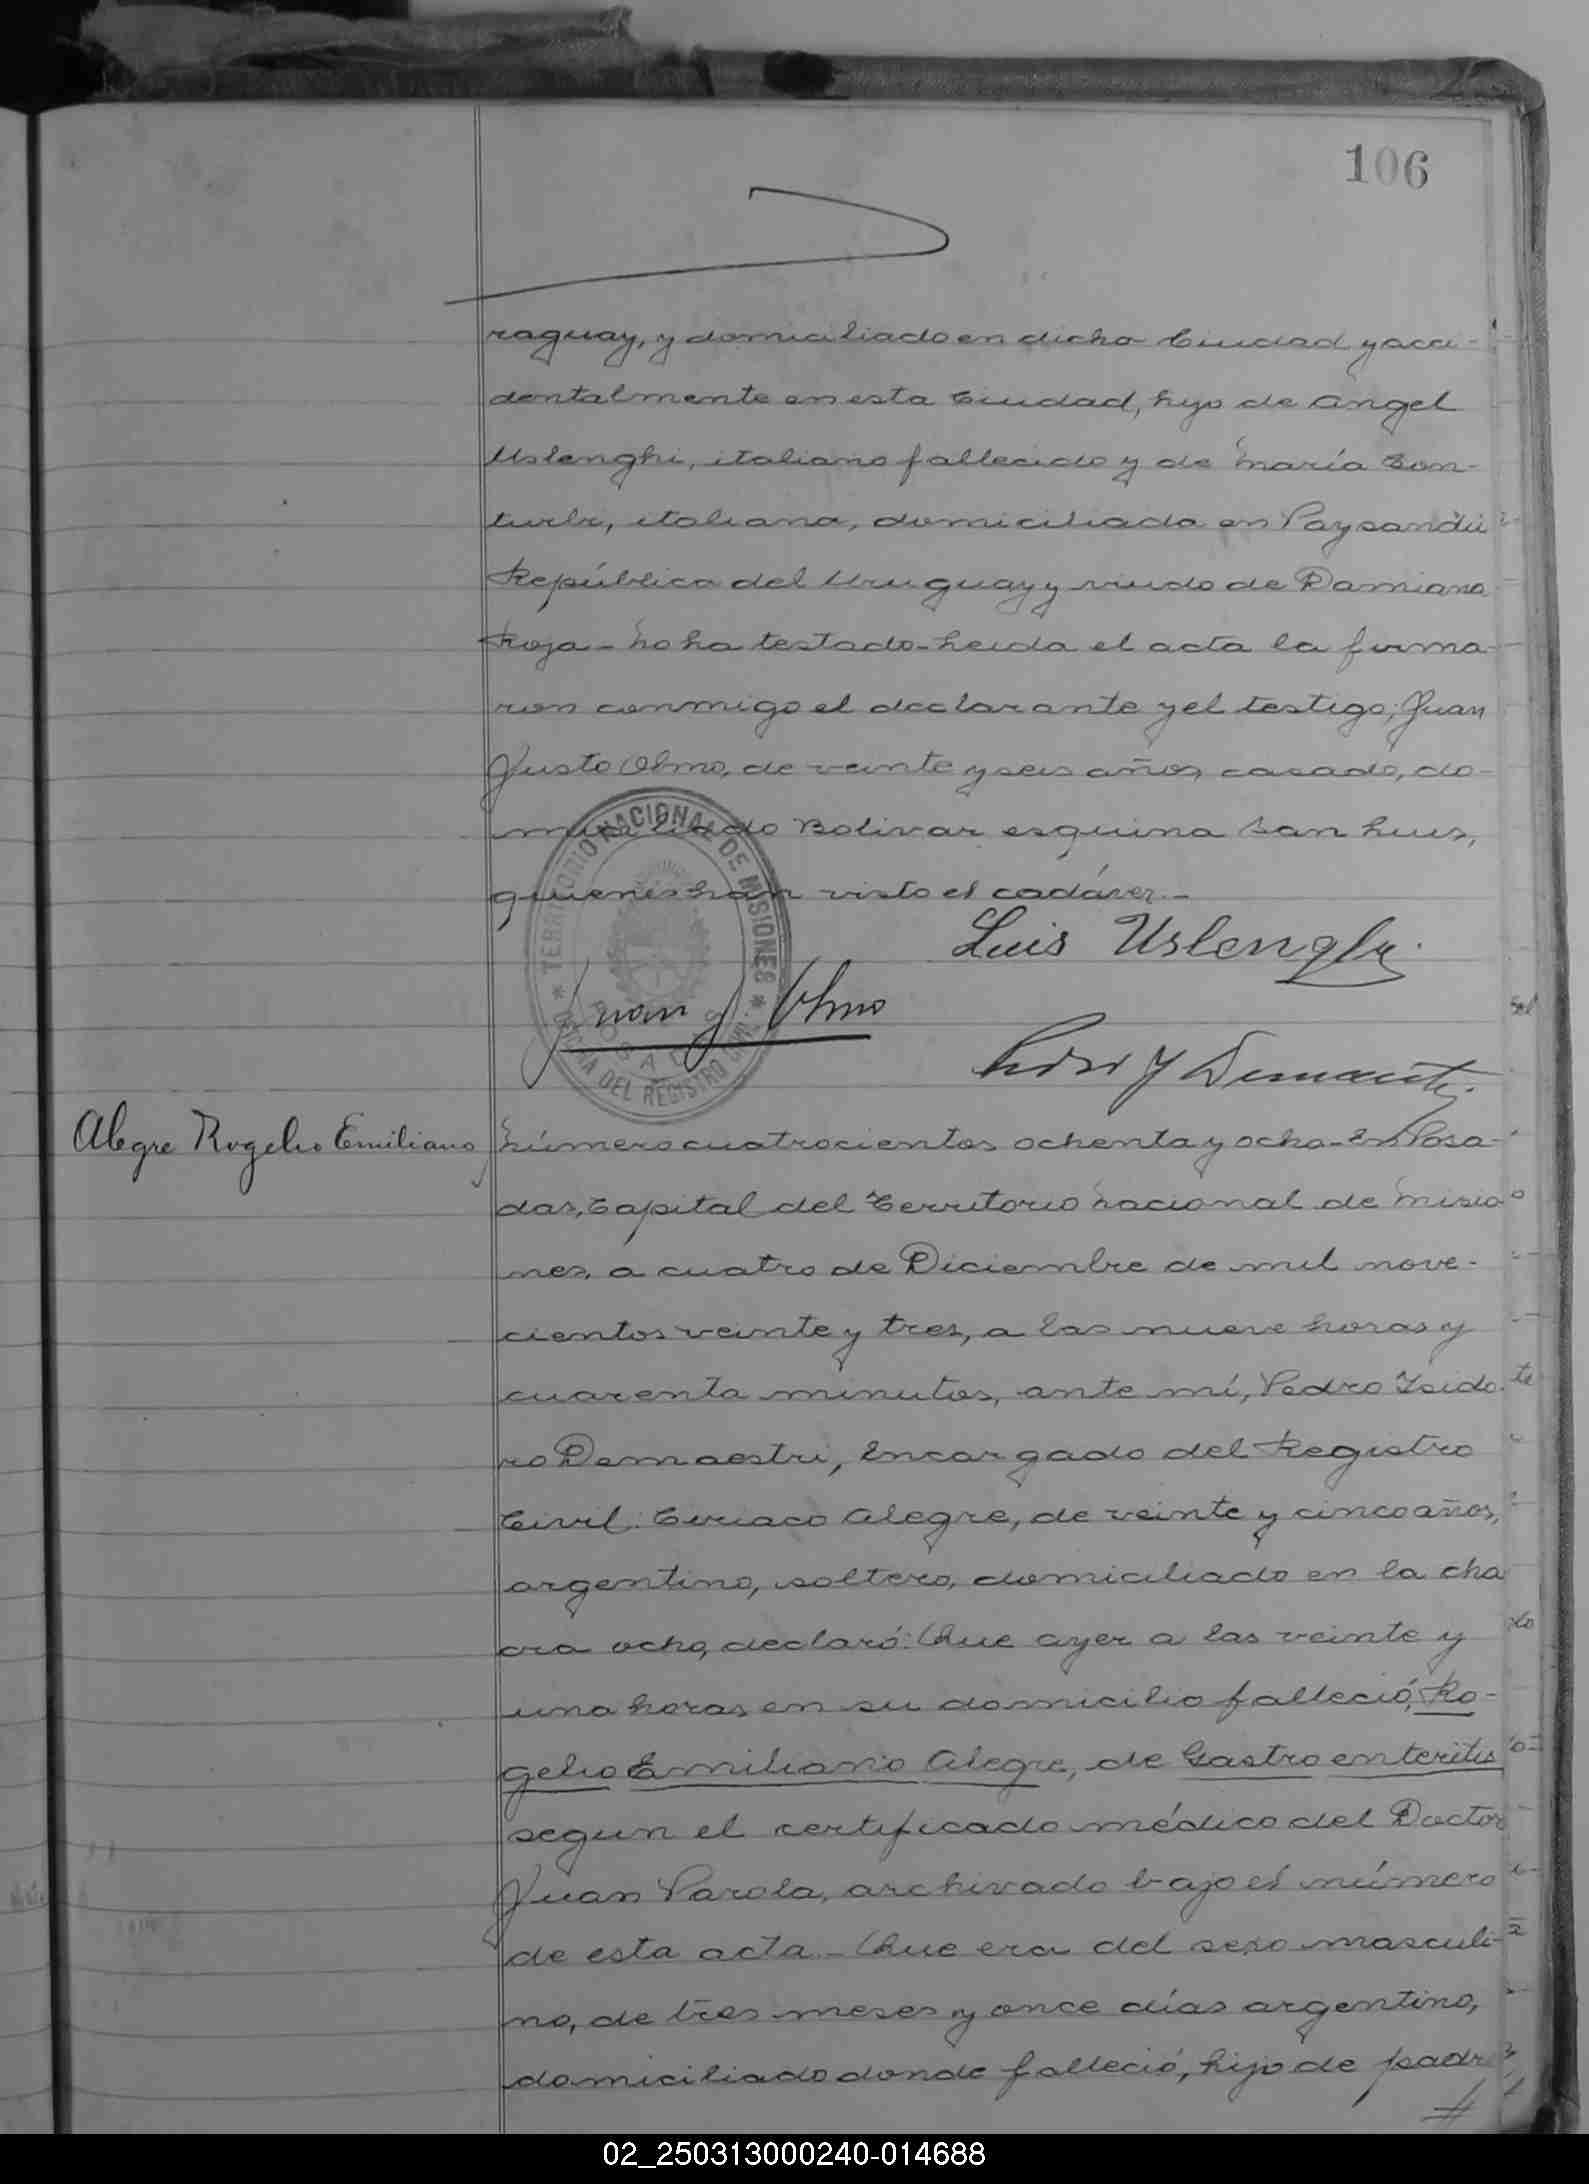 106
raguay, y domiciliado en dicha Ciudad y acci-
dentalmente en esta Ciudad, hijo de Angel
Uslenghi, italiano fallecido y de María Con-
turbi, italiana, domiciliada en Paysandú
República del Uruguay y viudo de Damiana
Roja - No ha testado - Leida el acta la firma-
ron conmigo el declarante y el testigo, Juan
Justo Olmo, de veinte y seis años, casado, do-
miciliado Bolivar esquina San Luis,
quienes han visto el cadáver.-
Luis Uslenghi.
Juan J Olmo
TERRITORIO NACIONAL DE MISIONES
OFICINA DEL REGISTRO CIVIL
POSADAS
Pedro Y Demaestri
Alegre Rogelio Emiliano
Número cuatrocientos ochenta y ocho - En Posa-
das, Capital del Territorio Nacional de Misio-
nes, a cuatro de Diciembre de mil nove-
cientos veinte y tres, a las nueve horas y
cuarenta minutos, ante mí, Pedro Ysido-
ro Demaestri, Encargado del Registro
Civil: Ciriaco Alegre, de veinte y cinco años,
argentino, soltero, domiciliado en la cha
cra ocho, declaró: Que ayer a las veinte y
una horas en su domicilio falleció, Ro-
gelio Emiliano Alegre, de Gastro enteritis
segun el certificado médico del Doctor
Juan Parola, archivado bajo el número
de esta acta.- Que era del sexo masculi-
no, de tres meses y once días argentino,
domiciliado donde falleció, hijo de padre
02_250313000240-014688